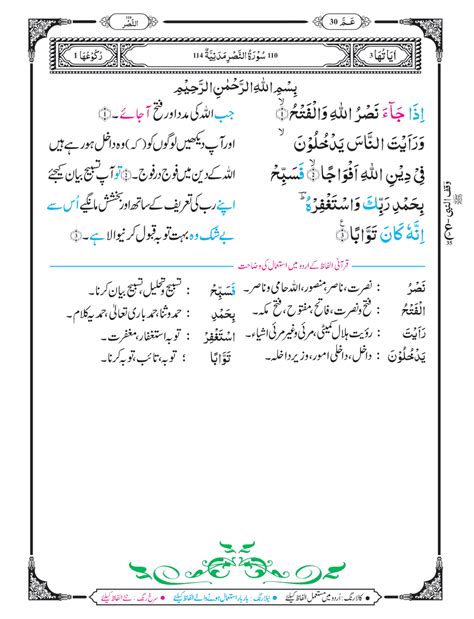 النَّصْر
عَمَّ 30
رُكُوْعُهَا 1
110 سُوْرَةُ النَّصْرِ مَدَنِيَّةٌ 114
اٰيَاتُهَا 3
بِسْمِ اللهِ الرَّحْمٰنِ الرَّحِيْمِ
اِذَا جَآءَ نَصْرُ اللهِ وَالْفَتْحُ ۙ﴿۱﴾
جب اللہ کی مدد اور فتح آ جائے۔ ﴿۱﴾
وَرَاَيْتَ النَّاسَ يَدْخُلُوْنَ
اور آپ دیکھیں لوگوں کو (کہ) وہ داخل ہو رہے ہیں
فِيْ دِيْنِ اللهِ اَفْوَاجًا ۙ﴿۲﴾ فَسَبِّحْ
اللہ کے دین میں فوج در فوج۔ ﴿۲﴾ تو آپ تسبیح بیان کیجئے
بِحَمْدِ رَبِّكَ وَاسْتَغْفِرْهُ ؕ
اپنے رب کی تعریف کے ساتھ اور بخشش مانگیے اُس سے
اِنَّهٗ كَانَ تَوَّابًا ﴿۳﴾
بے شک وہ بہت توبہ قبول کرنیوالا ہے۔ ﴿۳﴾
قرآنی الفاظ کے اردو میں استعمال کی وضاحت
نَصْرُ : نصرت، ناصر، منصور، اللہ حامی و ناصر۔
فَسَبِّحْ : تسبیح و تحلیل، تسبیح بیان کرنا۔
الْفَتْحُ : فتح و نصرت، فاتح، مفتوح، فتح مکہ۔
بِحَمْدِ : حمد و ثنا، حمد باری تعالیٰ، حمدیہ کلام۔
رَاَيْتَ : رؤیت ہلال کمیٹی، مرئی و غیر مرئی اشیاء۔
اسْتَغْفِرْ : توبہ استغفار، مغفرت۔
يَدْخُلُوْنَ : داخل، داخلی امور، وزیر داخلہ۔
تَوَّابًا : توبہ، تائب، توبہ کرنا۔
وقف النبی ﷺ
• کالا رنگ: اُردو میں مستعمل الفاظ کیلئے • نیلا رنگ: بار بار استعمال ہونے والے الفاظ کیلئے • سرخ رنگ: نئے الفاظ کیلئے